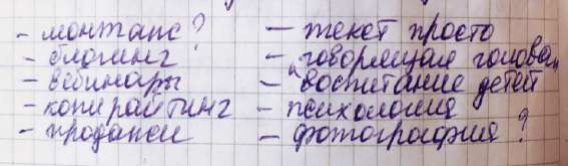 - монтаж?
- блогинг
- вебинары
- копирайтинг
- продажи
- текст просто
- "говорящая голова"
- воспитание детей
- психология
- фотография?